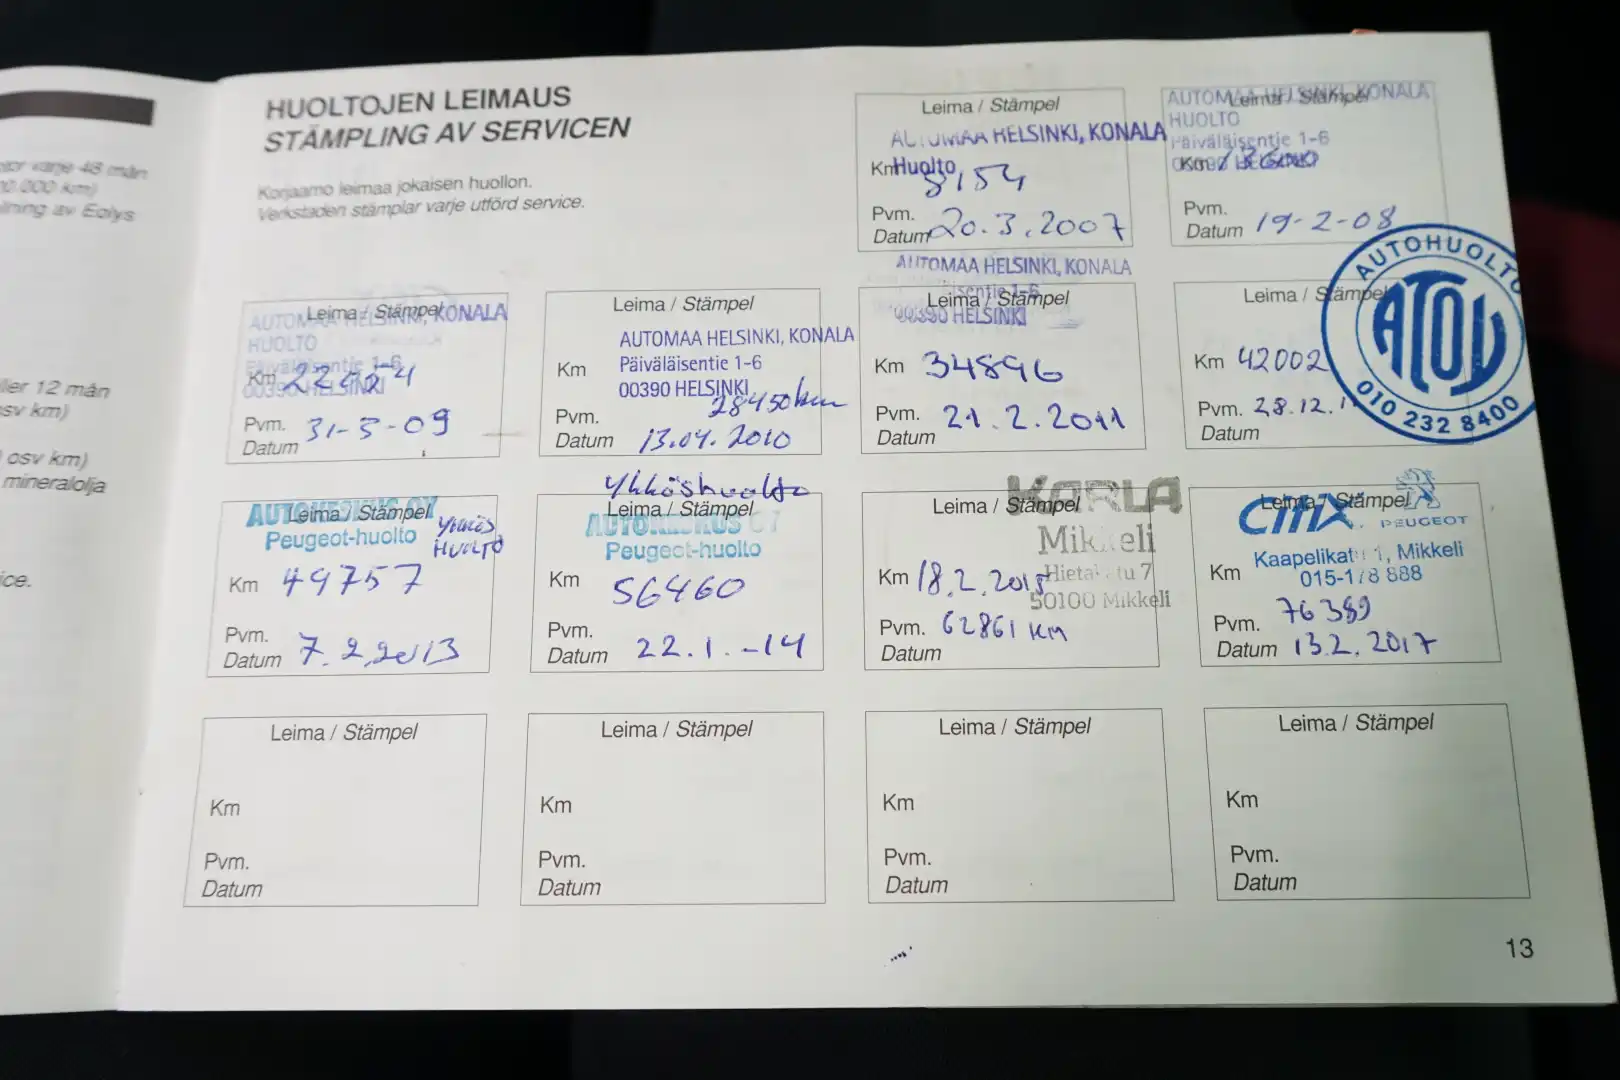 tor varje 48 mån
0.000 km)
av Eolys
ller 12 mån
osv km)
osv km)
mineralolja
ice.
HUOLTOJEN LEIMAUS
STÄMPLING AV SERVICEN
Korjaamo leimaa jokaisen huollon.
Verkstaden stämplar varje utförd service.
Leima / Stämpel
AUTOMAA HELSINKI, KONALA
Huolto
Km 8154
Pvm.
Datum 20.3.2007
Leima / Stämpel
AUTOMAA HELSINKI, KONALA
HUOLTO
Päiväläisentie 1-6
00390 HELSINKI
Km
Pvm.
Datum 19-2-08
Leima / Stämpel
AUTOMAA HELSINKI, KONALA
HUOLTO
Päiväläisentie 1-6
00390 HELSINKI
Km
Pvm.
Datum 31-3-09
Leima / Stämpel
AUTOMAA HELSINKI, KONALA
Päiväläisentie 1-6
00390 HELSINKI
Km 28450km
Pvm.
Datum 13.04.2010
AUTOMAA HELSINKI, KONALA
Leima / Stämpel
00390 HELSINKI
Km 34896
Pvm.
Datum 21.2.2011
Leima / Stämpel
AUTOHUOLTO
ATOY
010 232 8400
Km 42002
Pvm. 28.12.
Datum
Leima / Stämpel
Peugeot-huolto
HUOLTO
Km 49757
Pvm.
Datum 7.2.2013
Ykköshuolto
Leima / Stämpel
Peugeot-huolto
Km 56460
Pvm.
Datum 22.1.-14
Leima / Stämpel
KORLA
Mikkeli
50100 Mikkeli
Km 18.2.2015
Pvm. 62861 KM
Datum
Leima / Stämpel
PEUGEOT
Kaapelikatu 1, Mikkeli
015-178 888
Km 76389
Pvm.
Datum 13.2.2017
Leima / Stämpel
Km
Pvm.
Datum
Leima / Stämpel
Km
Pvm.
Datum
Leima / Stämpel
Km
Pvm.
Datum
Leima / Stämpel
Km
Pvm.
Datum
13